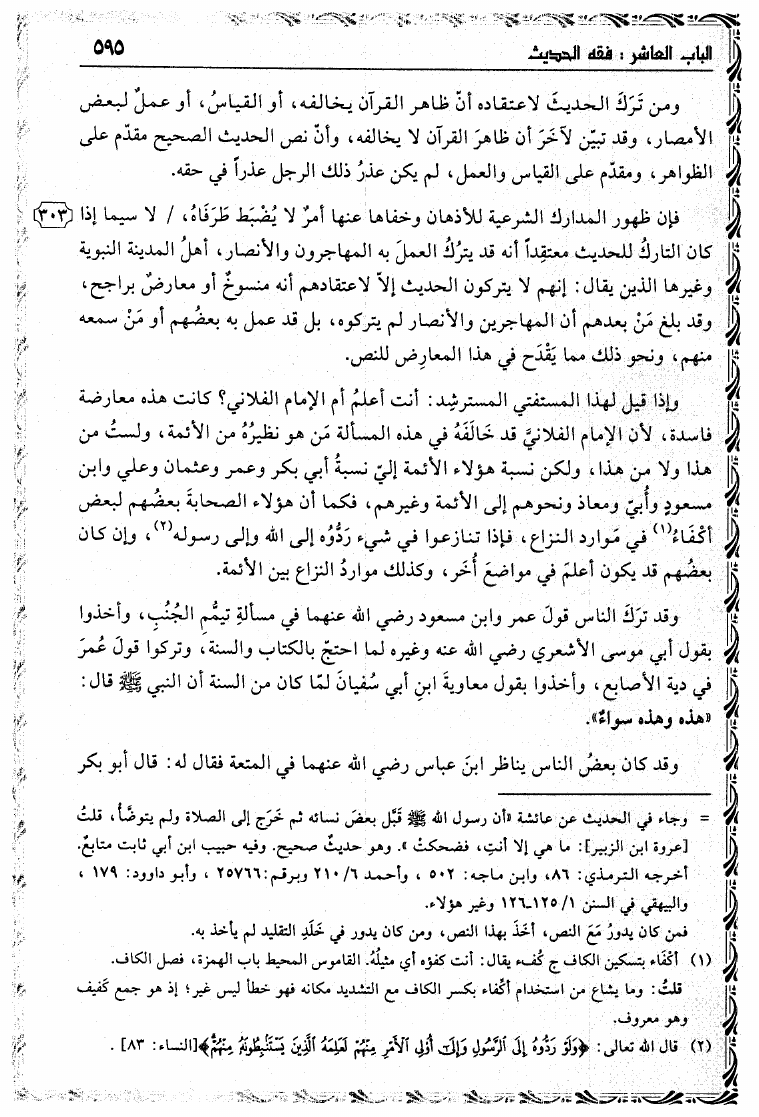 الباب العاشر : فقه الحديث ٥٩٥
ومن تَرَكَ الحديثَ لاعتقاده أنّ ظاهر القرآن يخالفه، أو القياسُ، أو عملٌ لبعض
الأمصار، وقد تبيّن لآخَرَ أن ظاهرَ القرآن لا يخالفه، وأنّ نص الحديث الصحيح مقدّم على
الظواهر، ومقدّم على القياس والعمل، لم يكن عذرُ ذلك الرجل عذراً في حقه.
فإن ظهور المدارك الشرعية للأذهان وخفاها عنها أمرٌ لا يُضْبَط طَرَفَاهُ، / لا سيما إذا ٣٠٣
كان التاركُ للحديث معتقِداً أنه قد يترُكُ العملَ به المهاجرون والأنصار، أهلُ المدينة النبوية
وغيرها الذين يقال: إنهم لا يتركون الحديث إلاّ لاعتقادهم أنه منسوخٌ أو معارضٌ براجح،
وقد بلغ مَنْ بعدهم أن المهاجرين والأنصار لم يتركوه، بل قد عمل به بعضُهم أو مَنْ سمعه
منهم، ونحو ذلك مما يَقْدَح في هذا المعارِض للنص.
وإذا قيل لهذا المستفتي المسترشِد: أنت أعلمُ أم الإمام الفلاني؟ كانت هذه معارضة
فاسدة، لأن الإمام الفلانيَّ قد خَالَفَهُ في هذه المسألة مَن هو نظيرُهُ من الأئمة، ولستُ من
هذا ولا من هذا، ولكن نسبة هؤلاء الأئمة إليّ نسبةُ أبي بكر وعمر وعثمان وعلي وابن
مسعودٍ وأُبيّ ومعاذ ونحوهم إلى الأئمة وغيرهم، فكما أن هؤلاء الصحابةَ بعضُهم لبعض
أكْفَاءُ(١) في مَوارد النزاع، فإذا تنازعوا في شيء رَدُّوُه إلى الله وإلى رسوله(٢)، وإن كان
بعضُهم قد يكون أعلمَ في مواضعَ أُخَر، وكذلك مواردُ النزاع بين الأئمة.
وقد ترَكَ الناس قولَ عمر وابن مسعود رضي الله عنهما في مسألةِ تيمُّمِ الجُنُبِ، وأخذوا
بقول أبي موسى الأشعري رضي الله عنه وغيره لما احتجّ بالكتاب والسنة، وتركوا قولَ عُمرَ
في دية الأصابع، وأخذوا بقول معاويةَ ابنِ أبي سُفيانَ لمّا كان من السنة أن النبي ﷺ قال:
«هذه وهذه سواءٌ».
وقد كان بعضُ الناس يناظر ابنَ عباس رضي الله عنهما في المتعة فقال له: قال أبو بكر
= وجاء في الحديث عن عائشة «أن رسول الله ﷺ قَبَّل بعضَ نسائه ثم خَرَج إلى الصلاة ولم يتوضَّأ، قلتُ
[عروة ابن الزبير]: ما هي إلا أنتِ، فضحكتْ ». وهو حديثٌ صحيح. وفيه حبيب ابن أبي ثابت متابعٌ.
أخرجه الترمذي: ٨٦، وابن ماجه: ٥٠٢ ، وأحمد ٢١٠/٦ وبرقم: ٢٥٧٦٦ ، وأبو داوود: ١٧٩ ،
والبيهقي في السنن ١/ ١٢٥ـ١٢٦ وغير هؤلاء.
فمن كان يدورُ مَعَ النص، أخَذَ بهذا النص، ومن كان يدور في خَلَدِ التقليد لم يأخذ به.
(١) أكْفَاء بتسكين الكاف ج كُفء يقال: أنت كفؤه أي مثيلُهُ. القاموس المحيط باب الهمزة، فصل الكاف.
قلتُ: وما يشاع من استخدام أكْفاء بكسر الكاف مع التشديد مكانه فهو خطأ ليس غير؛ إذ هو جمع كَفيف
وهو معروف.
(٢) قال الله تعالى: ﴿وَلَوْ رَدُّوهُ إِلَى ٱلرَّسُولِ وَإِلَىٰٓ أُوْلِى ٱلْأَمْرِ مِنْهُمْ لَعَلِمَهُ ٱلَّذِينَ يَسْتَنۢبِطُونَهُ مِنْهُمْ﴾[النساء: ٨٣] .